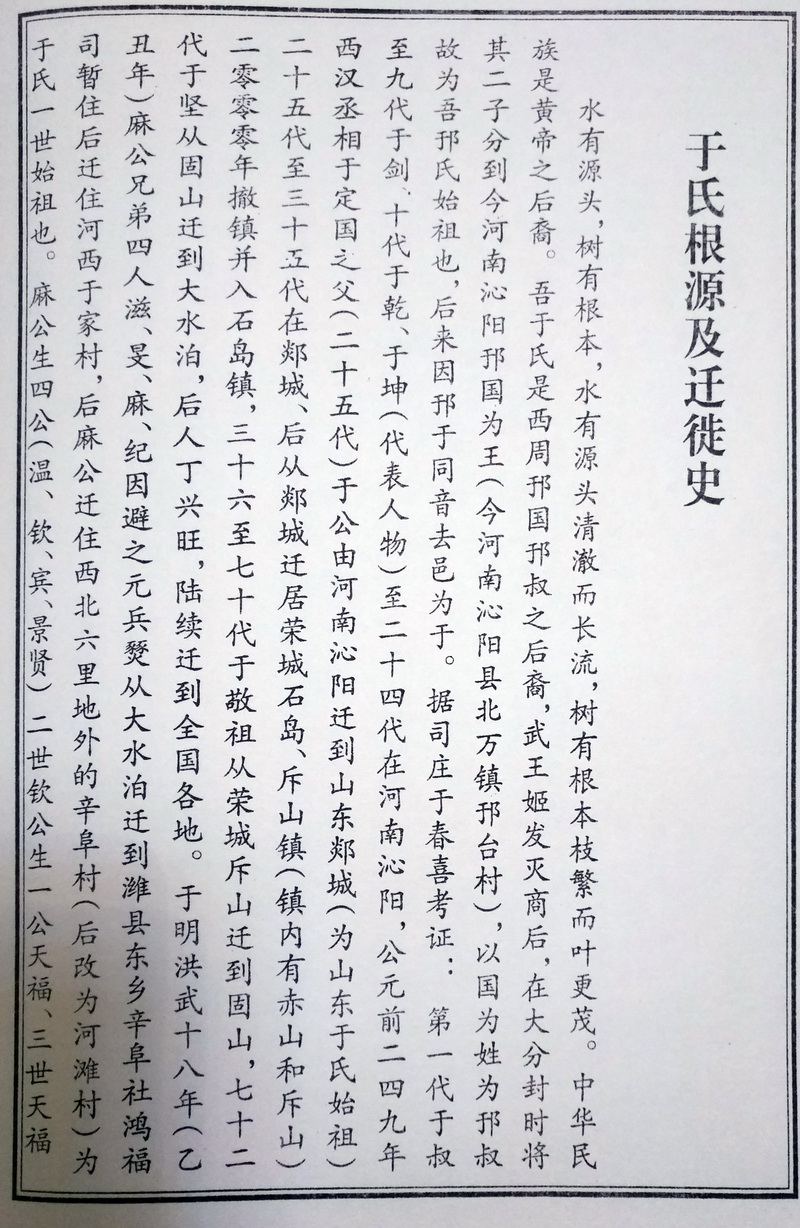 于氏根源及迁徙史
水有源头，树有根本，水有源头清澈而长流，树有根本枝繁而叶更茂。中华民
族是黄帝之后裔。吾于氏是西周邘国邘叔之后裔，武王姬发灭商后，在大分封时将
其二子分到今河南沁阳邘国为王（今河南沁阳县北万镇邘台村），以国为姓为邘叔
故为吾邘氏始祖也，后来因邘于同音去邑为于。据司庄于春喜考证：第一代于叔
至九代于剑、十代于乾、于坤（代表人物）至二十四代在河南沁阳，公元前二四九年
西汉丞相于定国之父（二十五代）于公由河南沁阳迁到山东郯城（为山东于氏始祖）
二十五代至三十五代在郯城、后从郯城迁居荣城石岛、斥山镇（镇内有赤山和斥山）
二零零零年撤镇并入石岛镇，三十六至七十代于敬祖从荣城斥山迁到固山，七十二
代于坚从固山迁到大水泊，后人丁兴旺，陆续迁到全国各地。于明洪武十八年（乙
丑年）麻公兄弟四人滋、旻、麻、纪因避之元兵燹从大水泊迁到潍县东乡辛阜社鸿福
司暂住后迁住河西于家村，后麻公迁住西北六里地外的辛阜村（后改为河滩村）为
于氏一世始祖也。麻公生四公（温、钦、宾、景贤）二世钦公生一公天福、三世天福